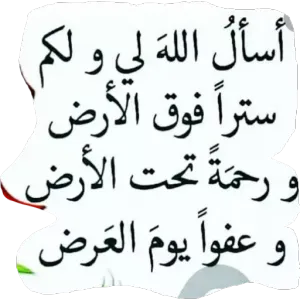 أسألُ اللهَ لي و لكم
ستراً فوق الأرض
و رحمَةً تحت الأرض
و عفواً يومَ العَرض